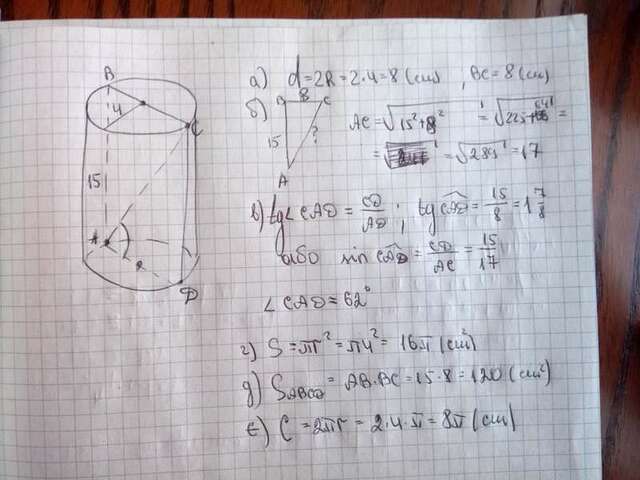 B
4
C
15
A
D
а) d=2R=2·4=8 (см), BC=8 (см)
б) B 8 C
15 ?
A
AC=√15²+8² = √225+64 =
= √289 = 17
в) tg∠CAD = CD/AD; tg CAD = 15/8 = 1 7/8
або sin CAD = CD/AC = 15/17
∠CAD = 62°
г) S=πr²=π4²=16π (см²)
д) S ABCD = AB·BC=15·8=120 (см²)
е) C=2πr=2·4·π=8π (см)